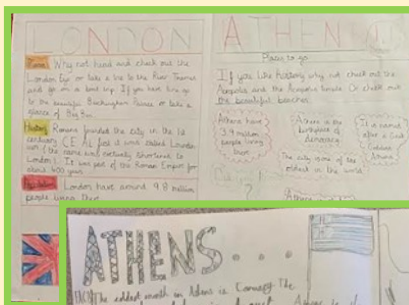 LONDON
Places Why not head and check out the
London Eye or take a trip to the River Thames
and go on a boat trip. If you have time go
to the beautiful Buckingham Palace or take a
glance of Big Ben.
History Romans founded the city in the 1st
century CE. At first it was called
(the name was eventually shortened to
London). It was part of the Roman Empire for
about 400 years
London have around 9.8 million
people living there
ATHENS
Places to go
If you like history why not check out the
Acropolis and the Acropolis temple. Or check out
the beautiful beaches.
Athens have
3.9 million
people living
there
Athens is the
birthplace of
democracy.
It is named
after a God
Goddess
Athena
The city is one of the
oldest in the world.
ATHENS...
FACT! The coldest month in Athens is January. The
August